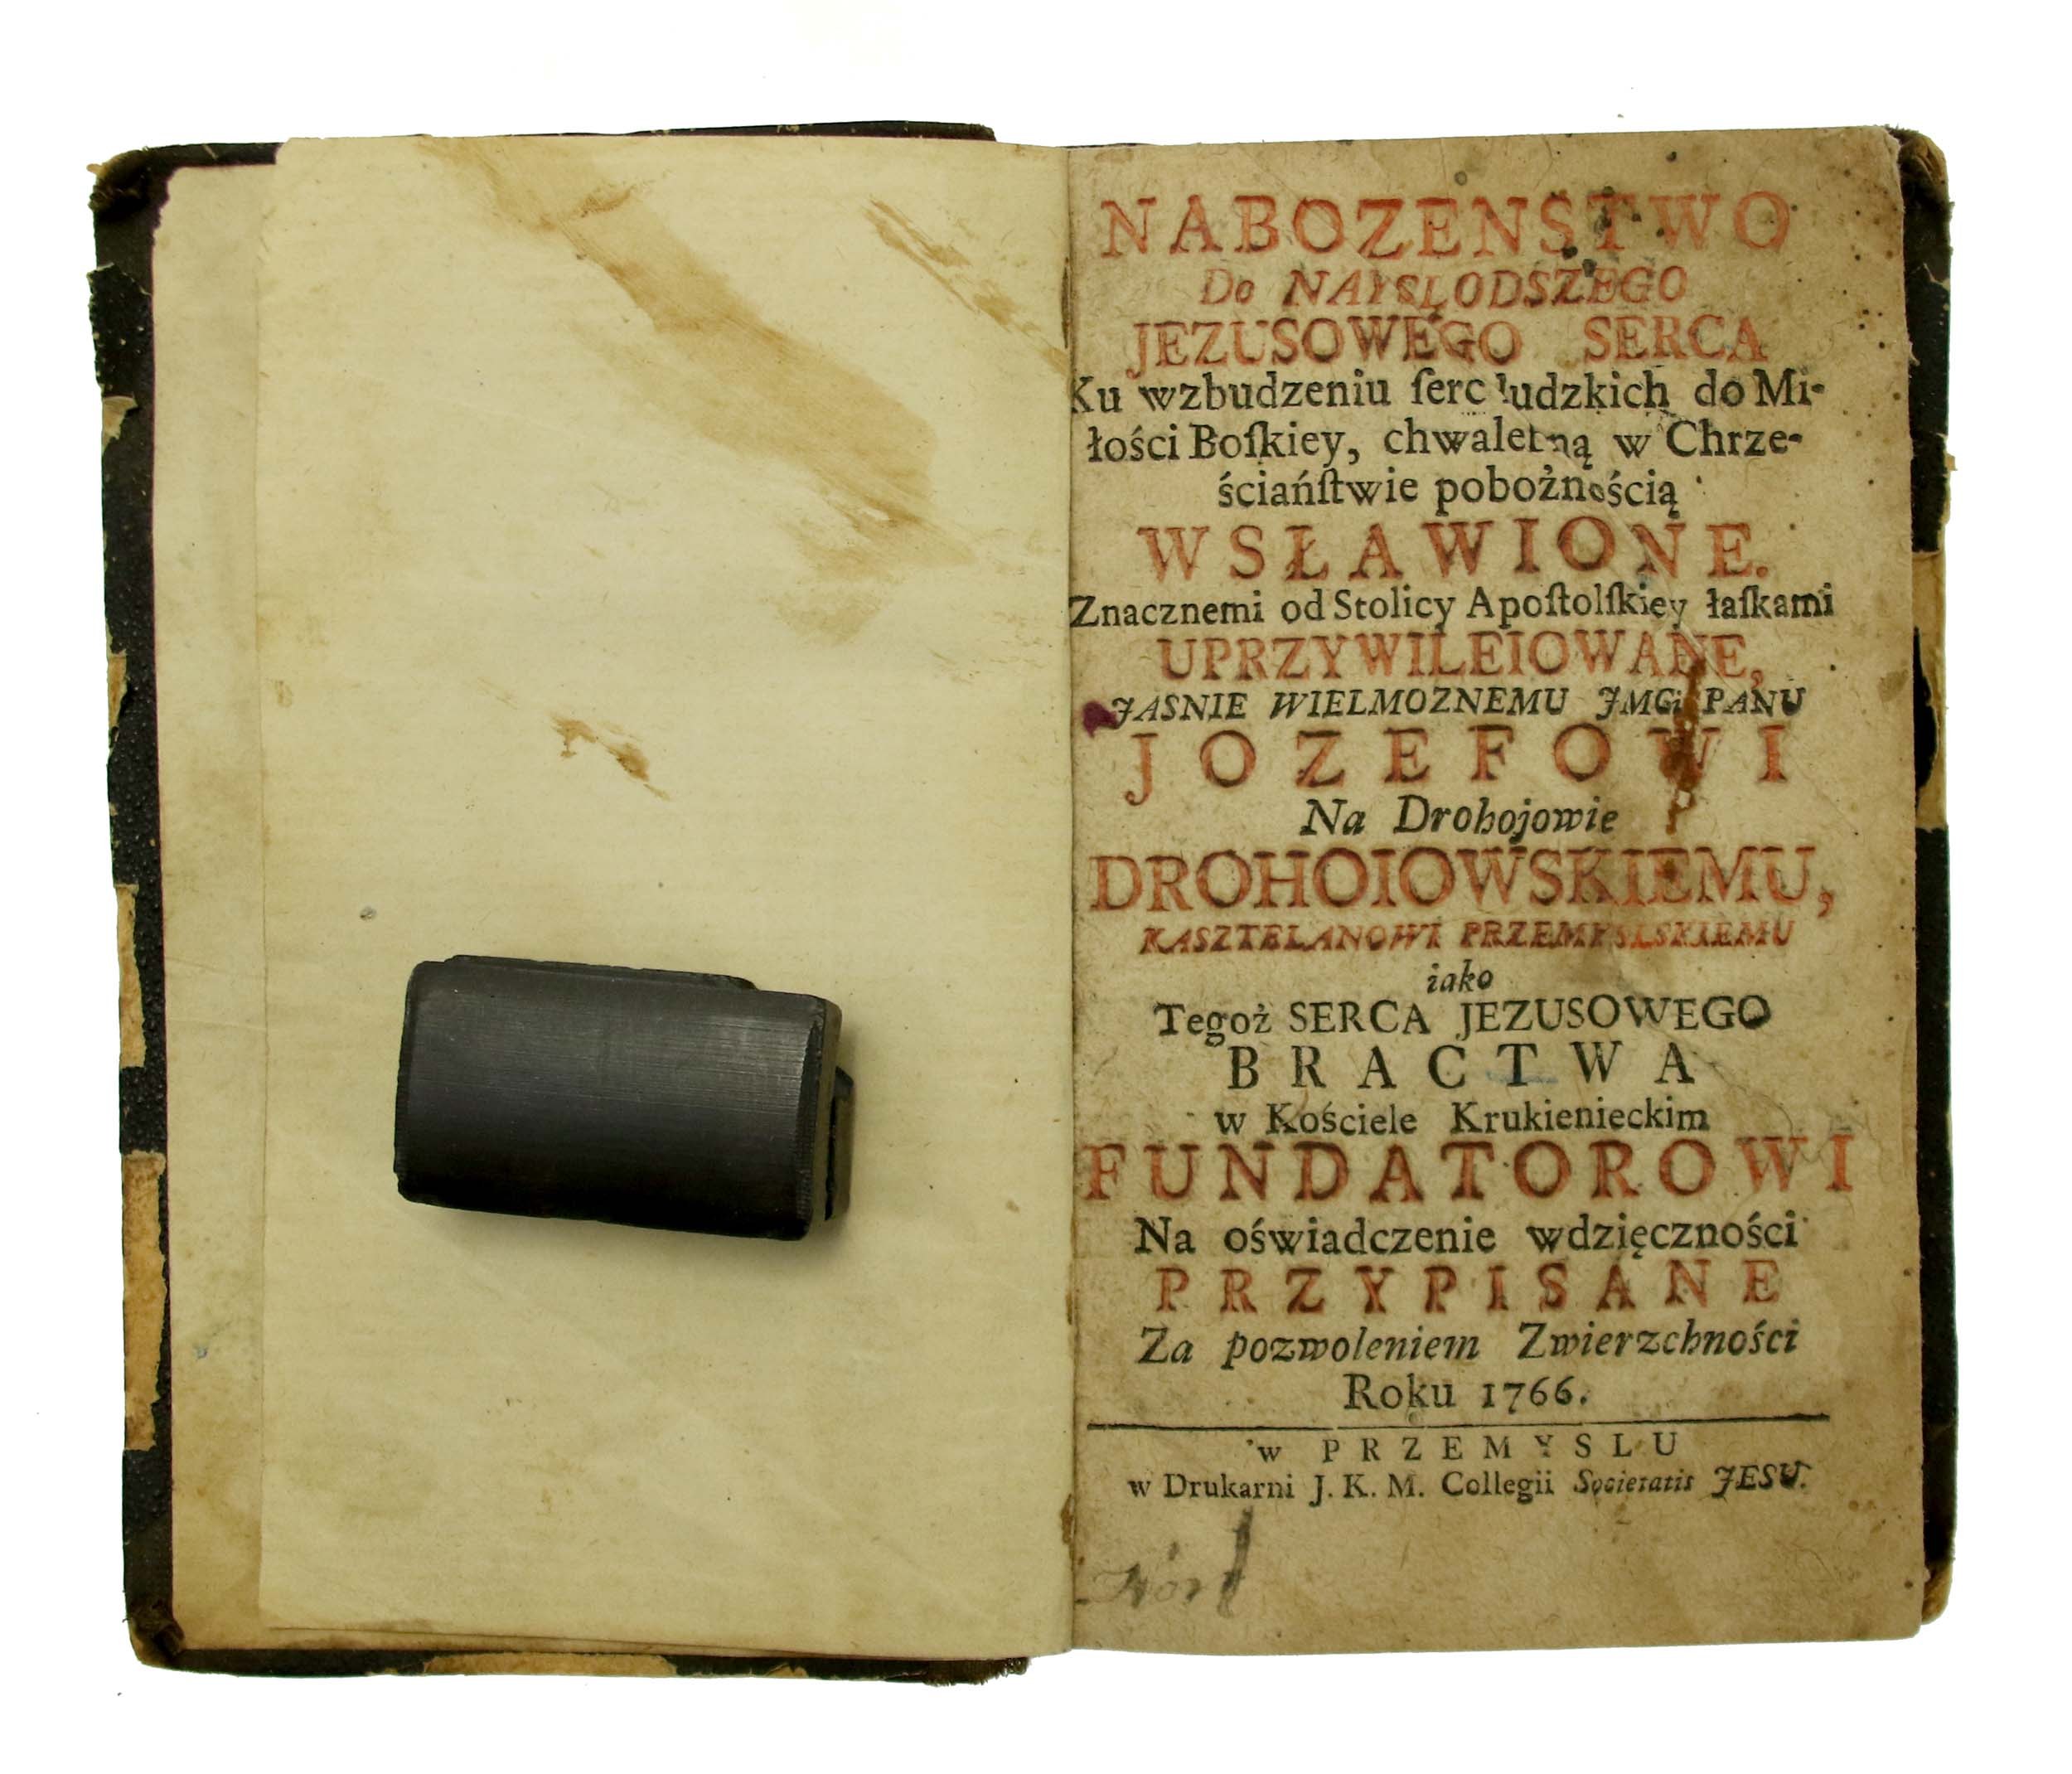 NABOZENSTWO
Do NAYSŁODSZEGO
JEZUSOWEGO SERCA
Ku wzbudzeniu ſerc ludzkich do Mi-
łości Boſkiey, chwalebną w Chrze-
ściańſtwie pobożnością
WSŁAWIONE.
Znacznemi od Stolicy Apoſtolſkiey łaſkami
UPRZYWILEIOWANE,
JASNIE WIELMOZNEMU JMCi PANU
JOZEFOWI
Na Drohojowie
DROHOIOWSKIEMU,
KASZTELANOWI PRZEMYSLSKIEMU
iako
Tegoż SERCA JEZUSOWEGO
BRACTWA
w Kościele Krukienieckim
FUNDATOROWI
Na oświadczenie wdzięczności
PRZYPISANE
Za pozwoleniem Zwierzchności
Roku 1766.
w PRZEMYSLU
w Drukarni J. K. M. Collegii Societatis JESU.